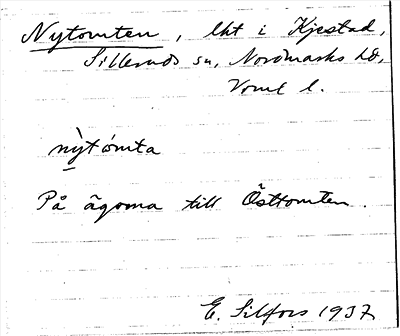 Nytomten, lht i Kjestad,
Silleruds sn, Nordmarks hd,
Vrml l.
nỳtómta
På ägorna till Östtomten.
E. Silfors 1937